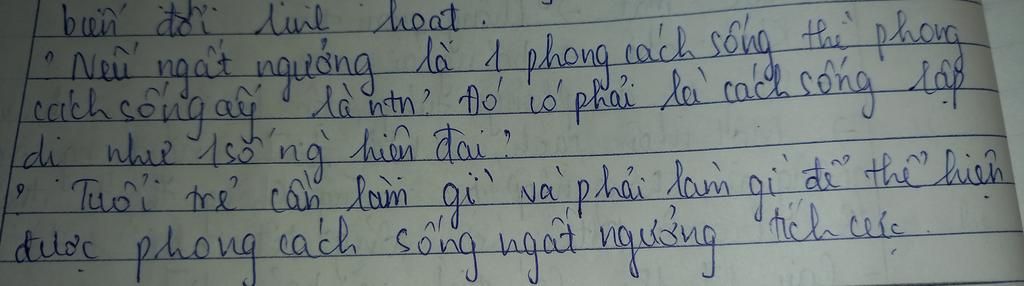 biến đổi linh hoạt.
? Nếu ngất ngưởng là 1 phong cách sống thì phong
cách sống ấy là ntn? Đó có phải là cách sống lập
dị như 1 số ng` hiện đại?
? Tuổi trẻ cần làm gì và phải làm gì để thể hiện
được phong cách sống ngất ngưởng tích cực.